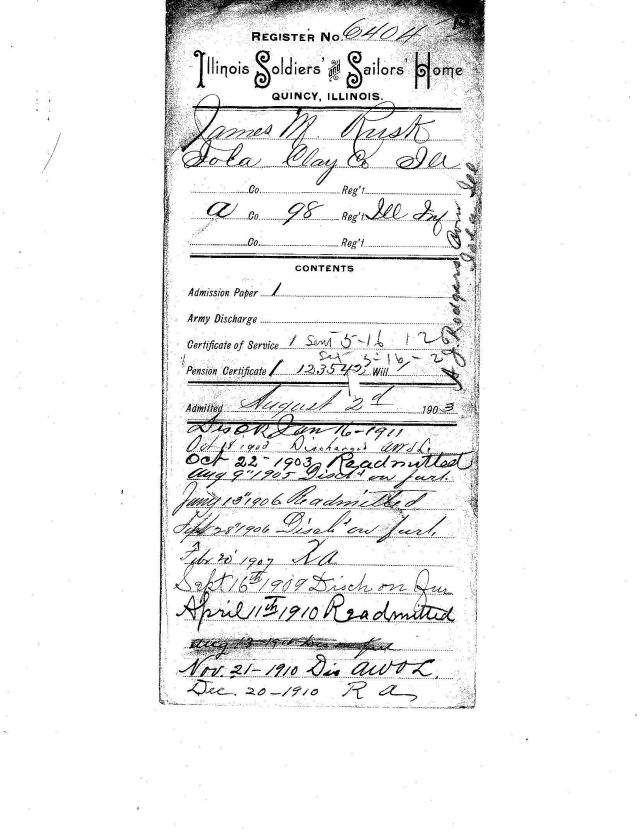 REGISTER No. 6404
Illinois Soldiers' and Sailors' Home
QUINCY, ILLINOIS.
James M. Rusk
Iola Clay Co Ill
Co. Reg't
A Co. 98 Reg't Ill Inf
Co. Reg't
A J Rodgers
Iola Ill
CONTENTS
Admission Paper 1
Army Discharge
Certificate of Service 1 Sent 5-16
5-16
Pension Certificate 1 123542 Will
Admitted August 2d 1903
Disch Jan 16-1911
Oct 18 1903 Discharged AWOL.
Oct 22-1903 Readmitted
Aug 9" 1905 Disch on furl.
1906 Readmitted
Sept 28" 1906 Disch on furl.
Feb 20" 1907 RA
Sept 16th 1909 Disch on Fur
April 11th 1910 Readmitted
Nov. 21-1910 Dis AWOL.
Dec. 20-1910 R A